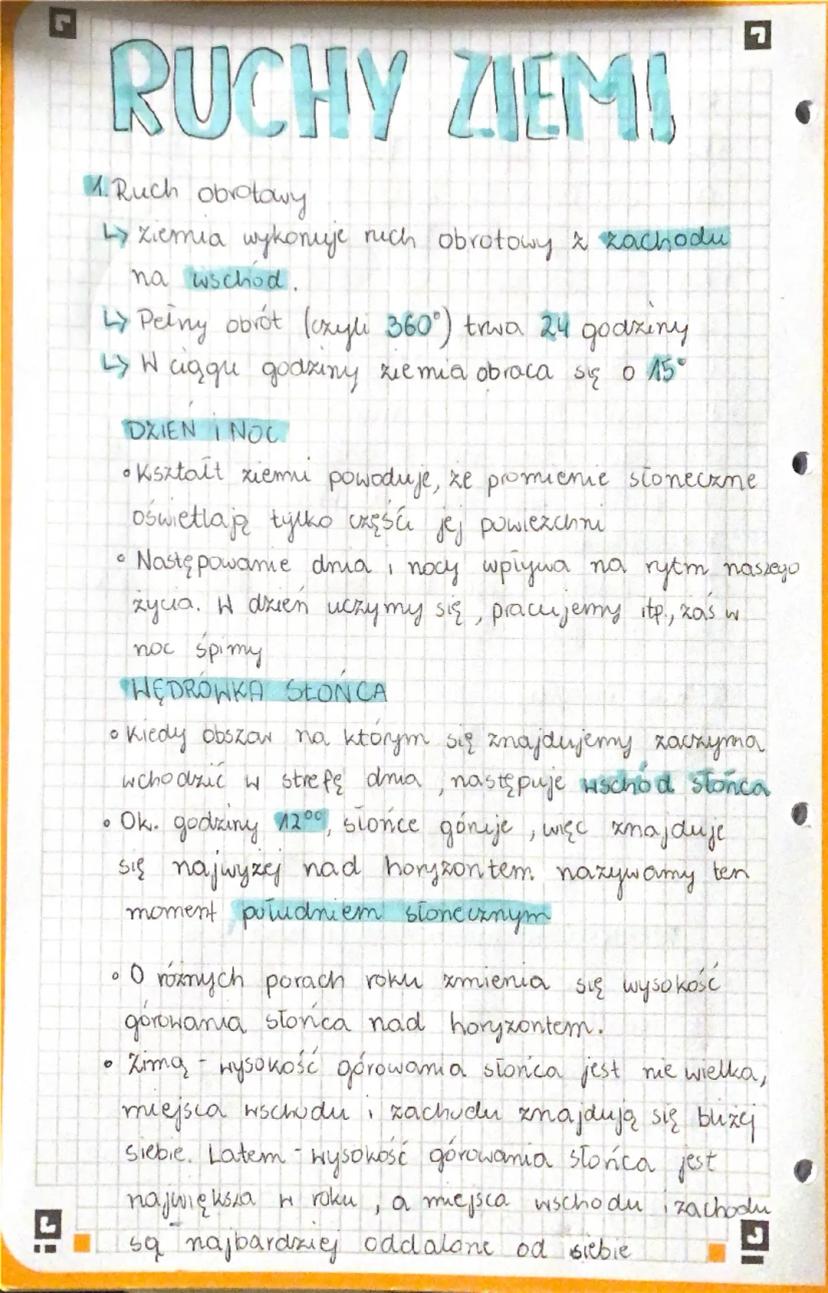 RUCHY ZIEMI
1. Ruch obrotowy
↳ ziemia wykonuje ruch obrotowy z zachodu
na wschód.
↳ Pełny obrót (czyli 360°) trwa 24 godziny
↳ W ciągu godziny ziemia obraca się o 15°
DZIEŃ i NOC
• Kształt ziemi powoduje, że promienie słoneczne
oświetlają tylko części jej powiezchni
• Następowanie dnia i nocy wpływa na rytm naszego
życia. W dzień uczymy się, pracujemy itp., zaś w
noc śpimy
WĘDRÓWKA SŁOŃCA
• Kiedy obszar na którym się znajdujemy zaczyma
wchodzić w strefę dnia, następuje wschód słońca
• Ok. godziny 12⁰⁰, słońce góruje, więc znajduje
się najwyzej nad horyzontem. nazywamy ten
moment południem słonecznym
• O różnych porach roku zmienia się wysokość
górowania słońca nad horyzontem.
• Zimą - wysokość górowania słońca jest nie wielka,
miejsca wschodu i zachodu znajdują się bliżej
siebie. Latem - wysokość górowania słońca jest
największa w roku, a miejsca wschodu i zachodu
są najbardziej oddalone od siebie